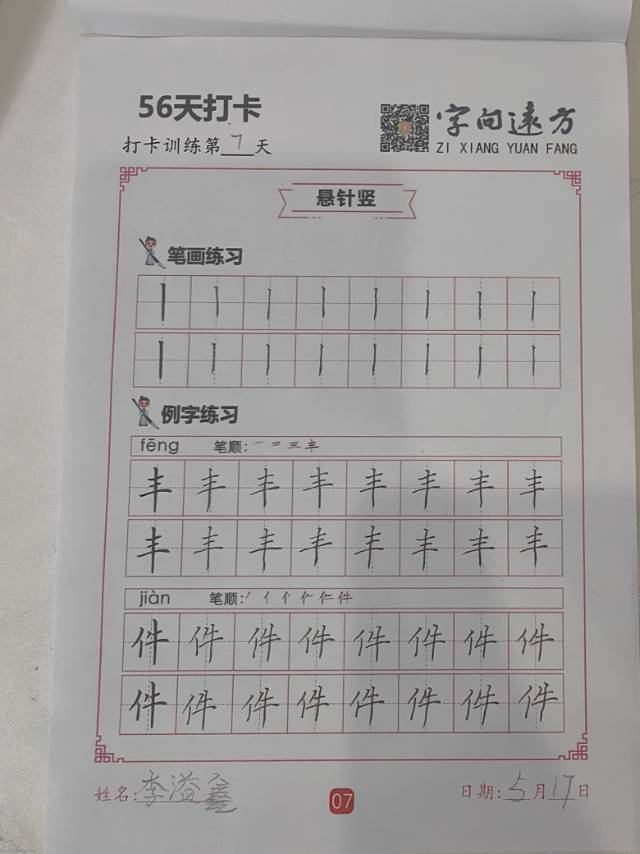 56天打卡
打卡训练第7天
字向远方
ZI XIANG YUAN FANG
悬针竖
笔画练习
丨 丨 丨 丨 丨 丨 丨 丨
丨 丨 丨 丨 丨 丨 丨 丨
例字练习
fēng 笔顺: 一 二 三 丰
丰 丰 丰 丰 丰 丰 丰 丰
丰 丰 丰 丰 丰 丰 丰 丰
jiàn 笔顺:
件 件 件 件 件 件 件 件
件 件 件 件 件 件 件 件
姓名: 李溢鑫
07
日期: 5月17日